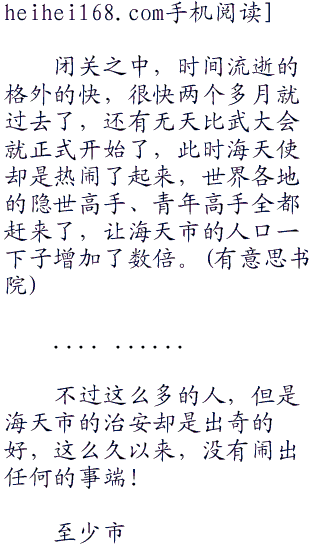 heihei168.com手机阅读]
闭关之中，时间流逝的
格外的快，很快两个多月就
过去了，还有无天比武大会
就正式开始了，此时海天使
却是热闹了起来，世界各地
的隐世高手、青年高手全都
赶来了，让海天市的人口一
下子增加了数倍。(有意思书
院)
.... ......
不过这么多的人，但是
海天市的治安却是出奇的
好，这么久以来，没有闹出
任何的事端！
至少市